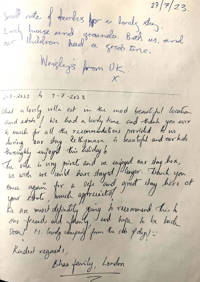 27/7/23.
Small note of thanks for a lovely stay.
Lovely house and grounds. Both us and
our children had a great time.
from UK
x
What a lovely villa set in the most beautiful location
and estate! We had a lovely time and thank you ever
so much for all the recommendations provided to us
during our stay. Rethymnon is beautiful and our kids
enjoyed this holiday!
The villa is very private and we enjoyed our stay here,
we wish we could have stayed longer. Thank you
once again for a safe and great stay here at
your estate, much appreciated.
We are most definitely going to recommend this to
our friends and family and hope to be back
soon!
Kindest regards,
family, London